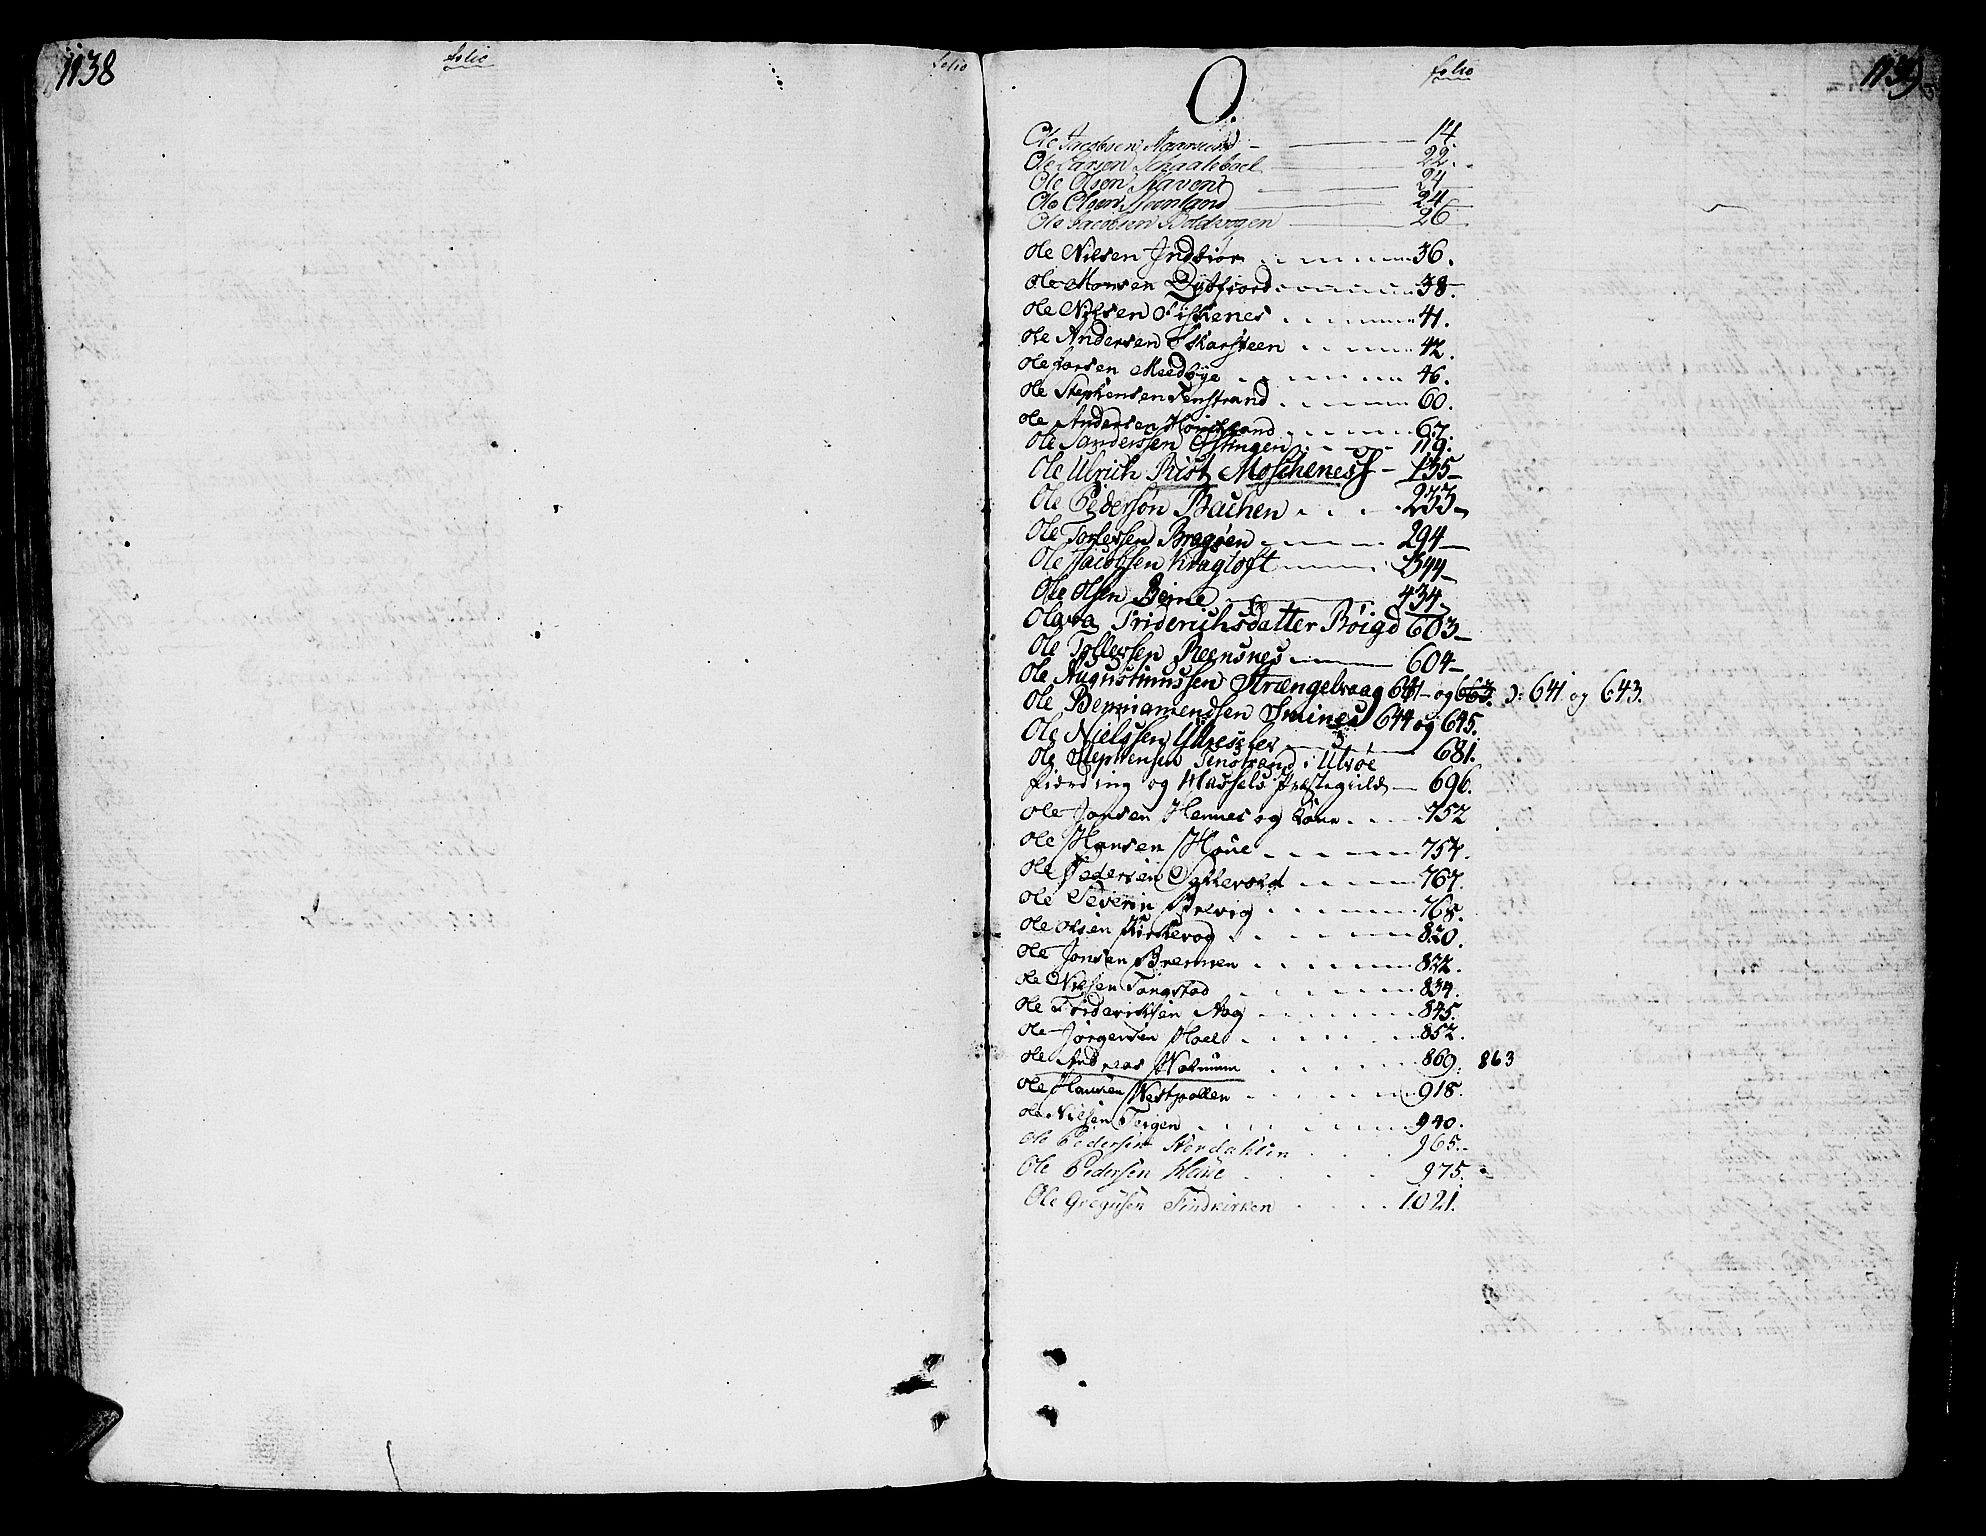 1138
folio
folio
O.
folio
1139
Ole Jacobsen 14.
Ole Larsen Schaaleboel 22.
Ole Olsen Stavent 24
Ole Olsen 24
Ole Jacobsen Boldvogen 26
Ole Nilsen Indbior 36.
Ole Monsen Dybfiord 38.
Ole Nilsen Fiskenes 41.
Ole Andersen Skarsteen 42.
Ole Larsen Meedbye 46.
Ole Stephensen Tenstrand 60.
Ole Andersen 67.
Ole Sanderssen 119.
Ole Ulrich Rist Moschenes 135
Ole Pedersøn Bachen 233
Ole Torlefsen Bragøen 294
Ole Jacobsen Kragtoft 344
Ole Olsen Beine 434
Olava Friderichsdatter Bøigd 603
Ole Tollefsen Reensnes 604
Ole Augustinussen Strængelvaag 641 og 663. ɔ: 641 og 643.
Ole Benniamendsen Smines 644 og 645.
Ole Nielssen 681.
Ole Stephensen Tenstrand i Ulvøe
fierding og Hassels Præstegield 696.
Ole Jonsen Hennes og kone 752
Ole Hansen Houe 757.
Ole Pedersen 767.
Ole Severin 768.
Ole Olsen Kirkevog 820.
Ole Jonsen Bremnen 822.
Ole Nilsen Tangstad 834.
Ole Frideriksen Aag 845.
Ole Jørgensen Hoel 852.
Ole Andreas Normann 869. 863
Ole Hansen Westpollen 918.
Ole Nilsen Torgen 940.
Ole Pedersen Nordahlen 965.
Ole Pedersen Haue 975.
Ole Gregusen Findkirken 1021.